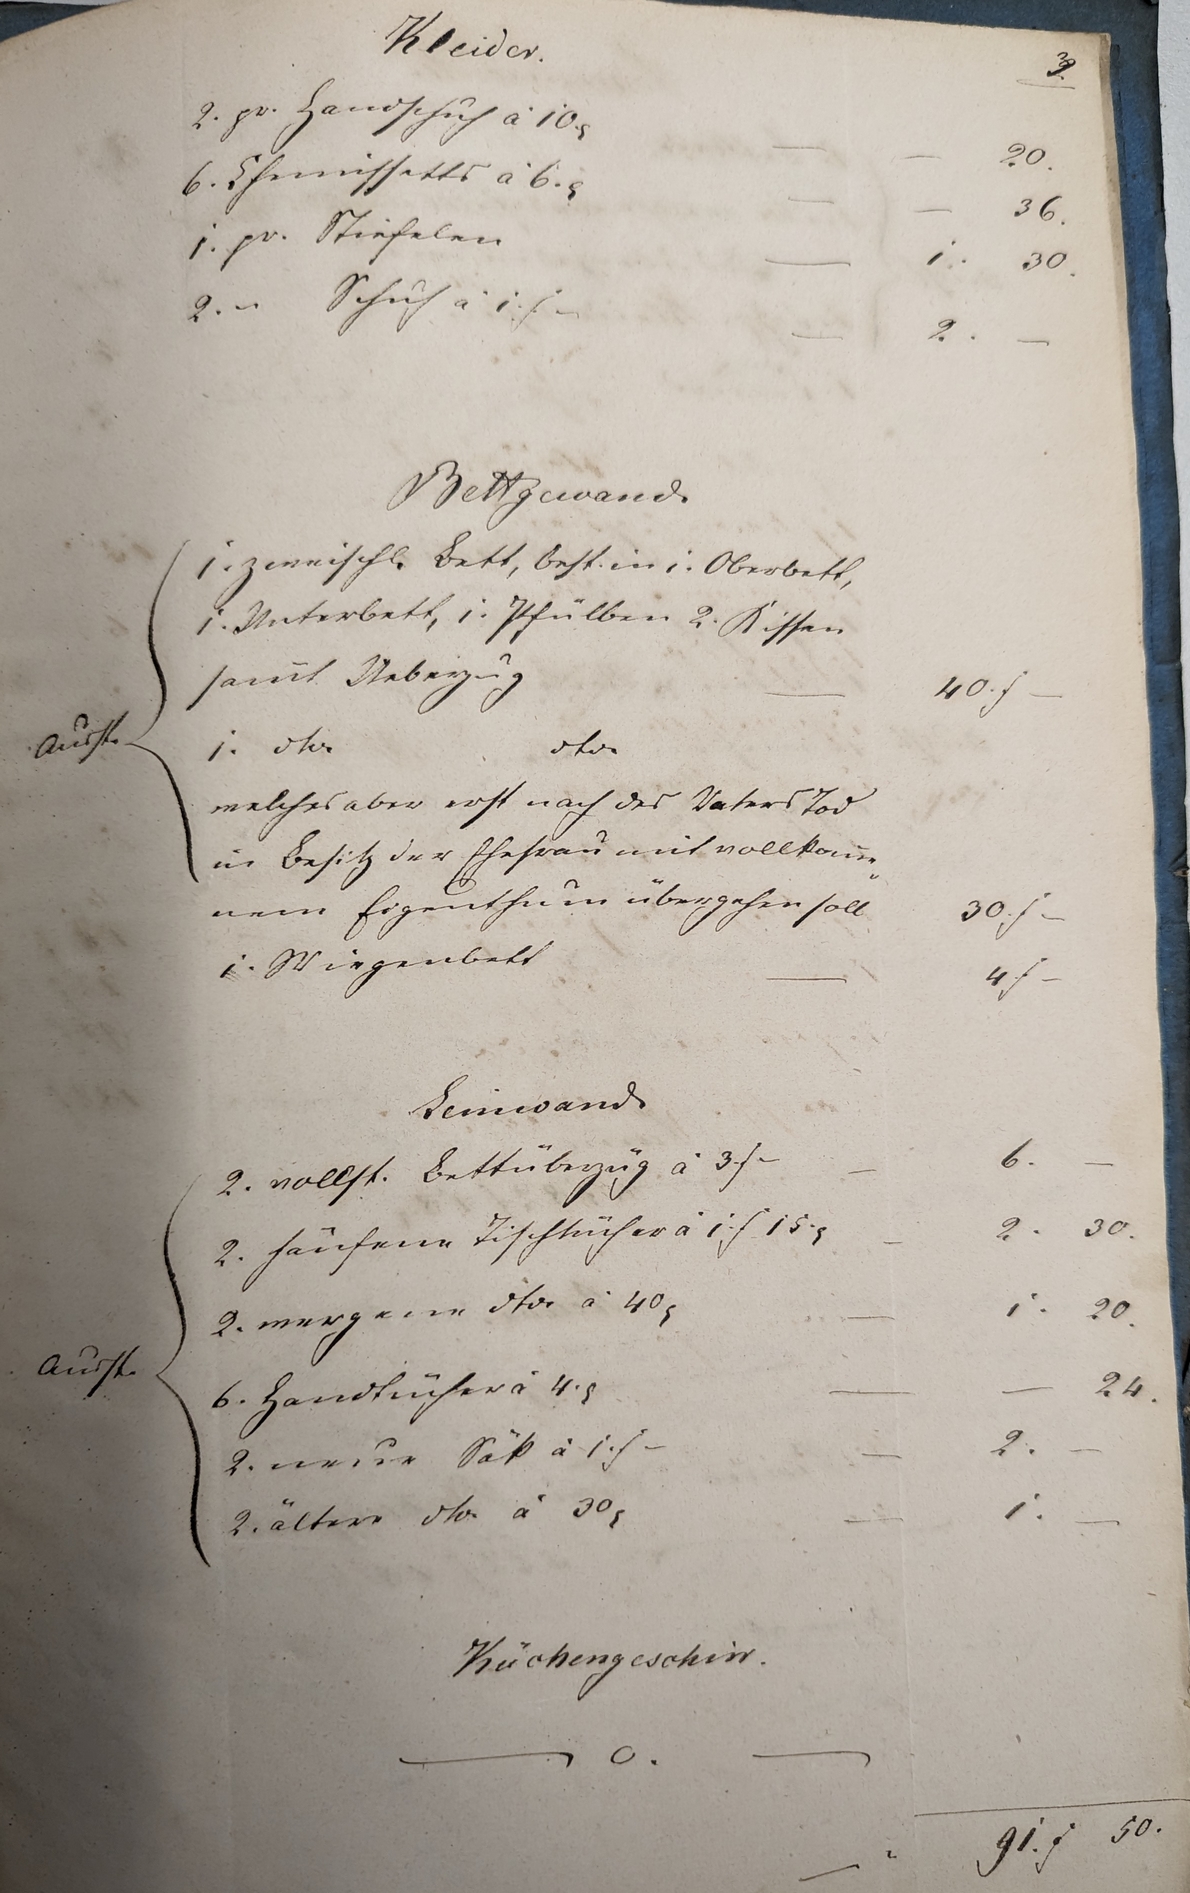 Kleider.
3.
2. pr. Handschuh à 10.x
— — 20.
6. Chemissetts à 6.x
— — 36.
1. pr. Stiefelen
— 1. 30.
2. " Schuh à 1.f –
— 2. —
Bettgewand.
1. zweischl. Bett, best. in 1. Oberbett,
1. Unterbett, 1. Pfülben 2. Kissen
samt Ueberzug — 40.f —
Ausst. 1. dto. dto.
welches aber erst nach des Vaters Tod
in Besitz der Ehefrau mit vollkomme-
nem Eigenthum übergehen soll 30.f –
1. Wiegenbett — 4f –
Leinwand.
2. vollst. Bettüberzüg à 3f – — 6. —
2. häufene Tischtücher à 1.f 15.x — 2. 30.
2. wergene dto. à 40x — 1. 20.
Ausst. 6. Handtücher à 4.x — — 24.
2. neue Säk à 1.f – — 2. —
2. ältere dto. à 30x — 1. —
Küchengeschirr.
— 0. —
91.f 50.